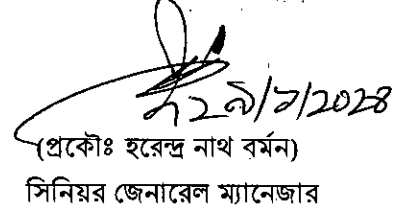 ২৯/১/২০২৪
(প্রকৌঃ হরেন্দ্র নাথ বর্মন)
সিনিয়র জেনারেল ম্যানেজার